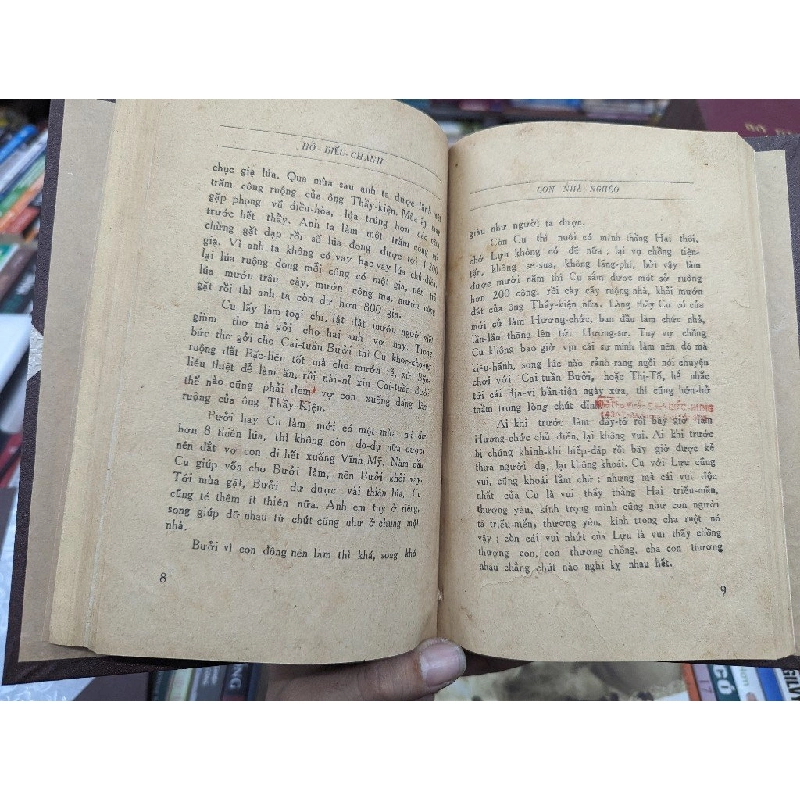 HỒ BIỂU-CHÁNH
chục giạ lúa. Qua mùa sau anh ta được lãnh một
trăm công ruộng của ông Thầy-kiện. Năm ấy may
gặp phong vũ điều-hòa, lúa trúng hơn các năm
trước hết thảy. Anh ta làm một trăm công mà
chừng gặt đạp rồi số lúa đong được tới 1.200
giạ. Vì anh ta không có vay bạc vay lúa chi điền,
lại lúa ruộng đong mỗi công có một giạ, nên trả
lúa mướn trâu cày, mướn công mạ, mướn công
gặt rồi thì anh ta còn dư hơn 800 giạ.
Cu lấy làm toại chí, lật đật mướn người viết
giùm thơ mà gởi cho hai anh vợ hay. Trong
bức thơ gởi cho Cai-tuần Bưởi thì Cu khen
ruộng đất Rạc-liêu tốt mà cho mướn rẻ,
liêu thiệt dễ làm ăn, rồi xin Cai-tuần
thế nào cũng phải đem vợ con xuống đặng làm
ruộng của ông Thầy Kiện.
Bưởi hay Cu làm mới có một mùa mà dư
hơn 8 thiên lúa, thì không còn do-dự nữa
nên dắt vợ con đi hết xuống Vĩnh Mỹ. Năm đầu
Cu giúp vốn cho Bưởi làm, nên Bưởi khỏi vay.
Tới mùa gặt, Bưởi dư được vài thiên lúa, Cu
cũng té thêm ít thiên nữa. Anh em tuy ở riêng,
song giúp đỡ nhau từ chút cũng như ở chung một
nhà.
Bưởi vì con đông nên làm thì khá, song khó
8
CON NHÀ NGHÈO
giàu như người ta được.
Còn Cu thì nuôi có mình thằng Hai thôi,
chớ Lựu không có đẻ nữa, lại vợ chồng tiện-
tặn, không se-sua, không lãng-phí, bởi vậy làm
được mười năm thì Cu sắm được một sở ruộng
hơn 200 công, rồi cày cấy ruộng nhà, khỏi mướn
đất của ông Thầy-kiện nữa. Làng thấy Cu có của
mới cử làm Hương-chức, ban đầu làm chức nhỏ,
lần-lần thăng lên tới Hương-sư. Tuy vợ chồng
Cu không bao giờ vịn cái sự mình làm nên đó mà
kiêu-hãnh, song lúc nào rảnh rang ngồi nói chuyện
chơi với Cai tuần Bưởi, hoặc Thị-Tố, hễ nhắc
tới cái địa-vị bần-tiện ngày xưa, thì cũng hớn-hở
thầm trong lòng chút đỉnh.
Ai khi trước làm đầy-tớ rồi bây giờ lên
Hương-chức chủ điền, lại không vui. Ai khi trước
bị chúng khinh-khi hiếp-đáp rồi bây giờ được kẻ
thưa người dạ, lại không khoái. Cu với Lựu cũng
vui, cũng khoái lắm chớ; nhưng mà cái vui độc
nhất của Cu là vui thấy thằng Hai triều-mến,
thương yêu, kính trọng mình cũng như con người
ta triều mến, thương yêu, kính trọng cha ruột nó
vậy; còn cái vui nhất của Lựu là vui thấy chồng
thương con, con thương chồng, cha con thương
nhau chẳng chút nào nghi kỵ nhau hết.
9